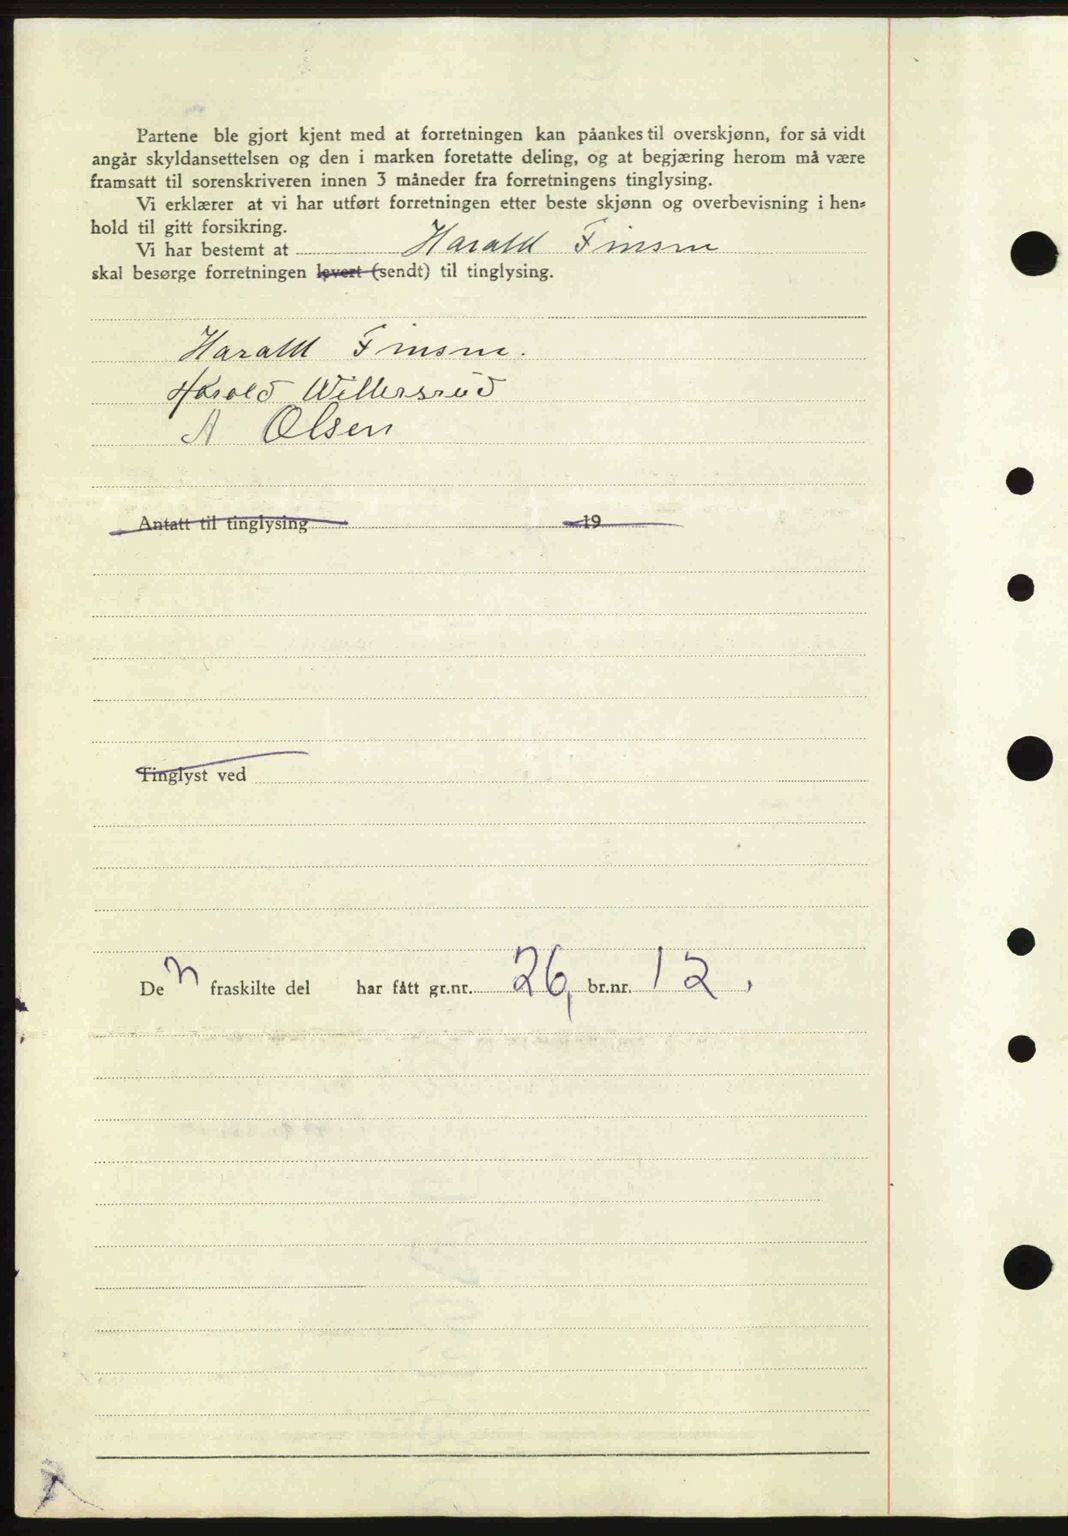 Partene ble gjort kjent med at forretningen kan påankes til overskjønn, for så vidt
angår skyldansettelsen og den i marken foretatte deling, og at begjæring herom må være
framsatt til sorenskriveren innen 3 måneder fra forretningens tinglysing.
Vi erklærer at vi har utført forretningen etter beste skjønn og overbevisning i hen=
hold til gitt forsikring.
Vi har bestemt at Harald Finsru
skal besørge forretningen levert (sendt) til tinglysing.
Harald Finsru.
Harald Willersrud
A Olsen
Antatt til tinglysing 19
Tinglyst ved
De n fraskilte del har fått gr.nr. 26, br.nr. 12.